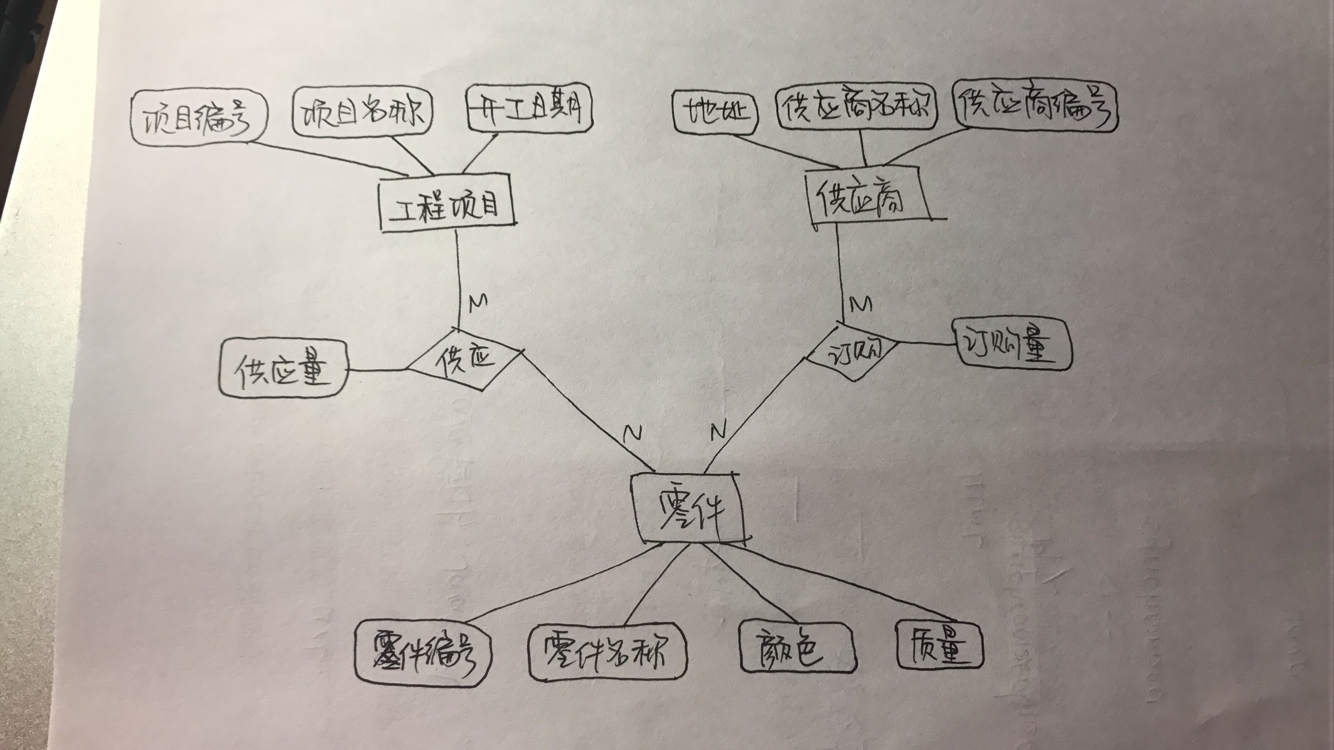 项目编号 项目名称 开工日期 地址 供应商名称 供应商编号
工程项目 供应商
M M
供应量 供应 订购 订购量
N N
零件
零件编号 零件名称 颜色 质量